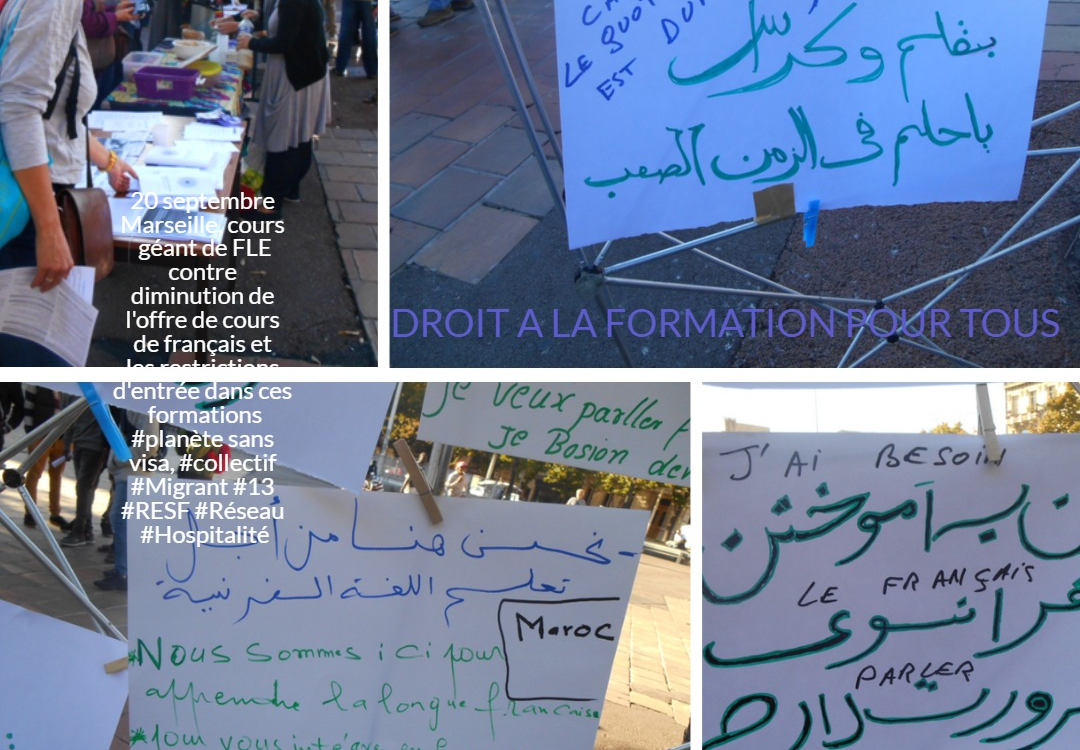 20 septembre
Marseille, cours
géant de FLE
contre
diminution de
l'offre de cours
de français et
les restrictions
d'entrée dans ces
formations
#planète sans
visa, #collectif
#Migrant #13
#RESF #Réseau
#Hospitalité
LE QUO
DU
EST
بقلم وكراس
ياحلم فى الزمن الصعب
DROIT A LA FORMATION POUR TOUS
Je veux parller
Je Bosion
- نحن هنا من أجل
تعلم اللغة الفرنسية
Maroc
Nous sommes ici pour
apprendre la longue francaise
J'AI BESOIN
به آموختن
LE FRANÇAIS
فرانسوی
PARLER
ضرورت دارد